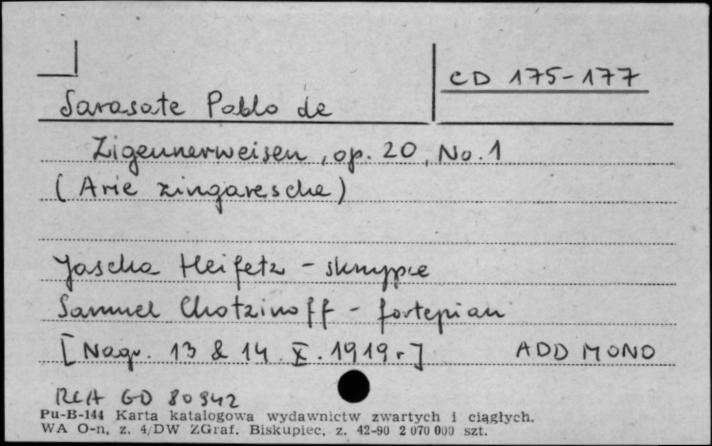 CD 175-177
Sarasate Pablo de
Zigeunerweisen, op. 20, No. 1
(Arie zingaresche)
Jascha Heifetz - skrzypce
Samuel Chotzinoff - fortepian
[Nagr. 13 & 14. X. 1919 r]
ADD MONO
RCA GD 80942
Pu-B-144 Karta katalogowa wydawnictw zwartych i ciągłych.
WA O-n, z. 4/DW ZGraf. Biskupiec, z. 42-90 2 070 000 szt.